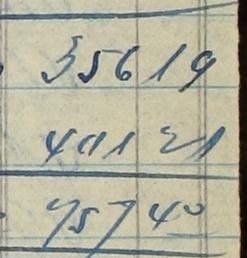 35619
40121
75740